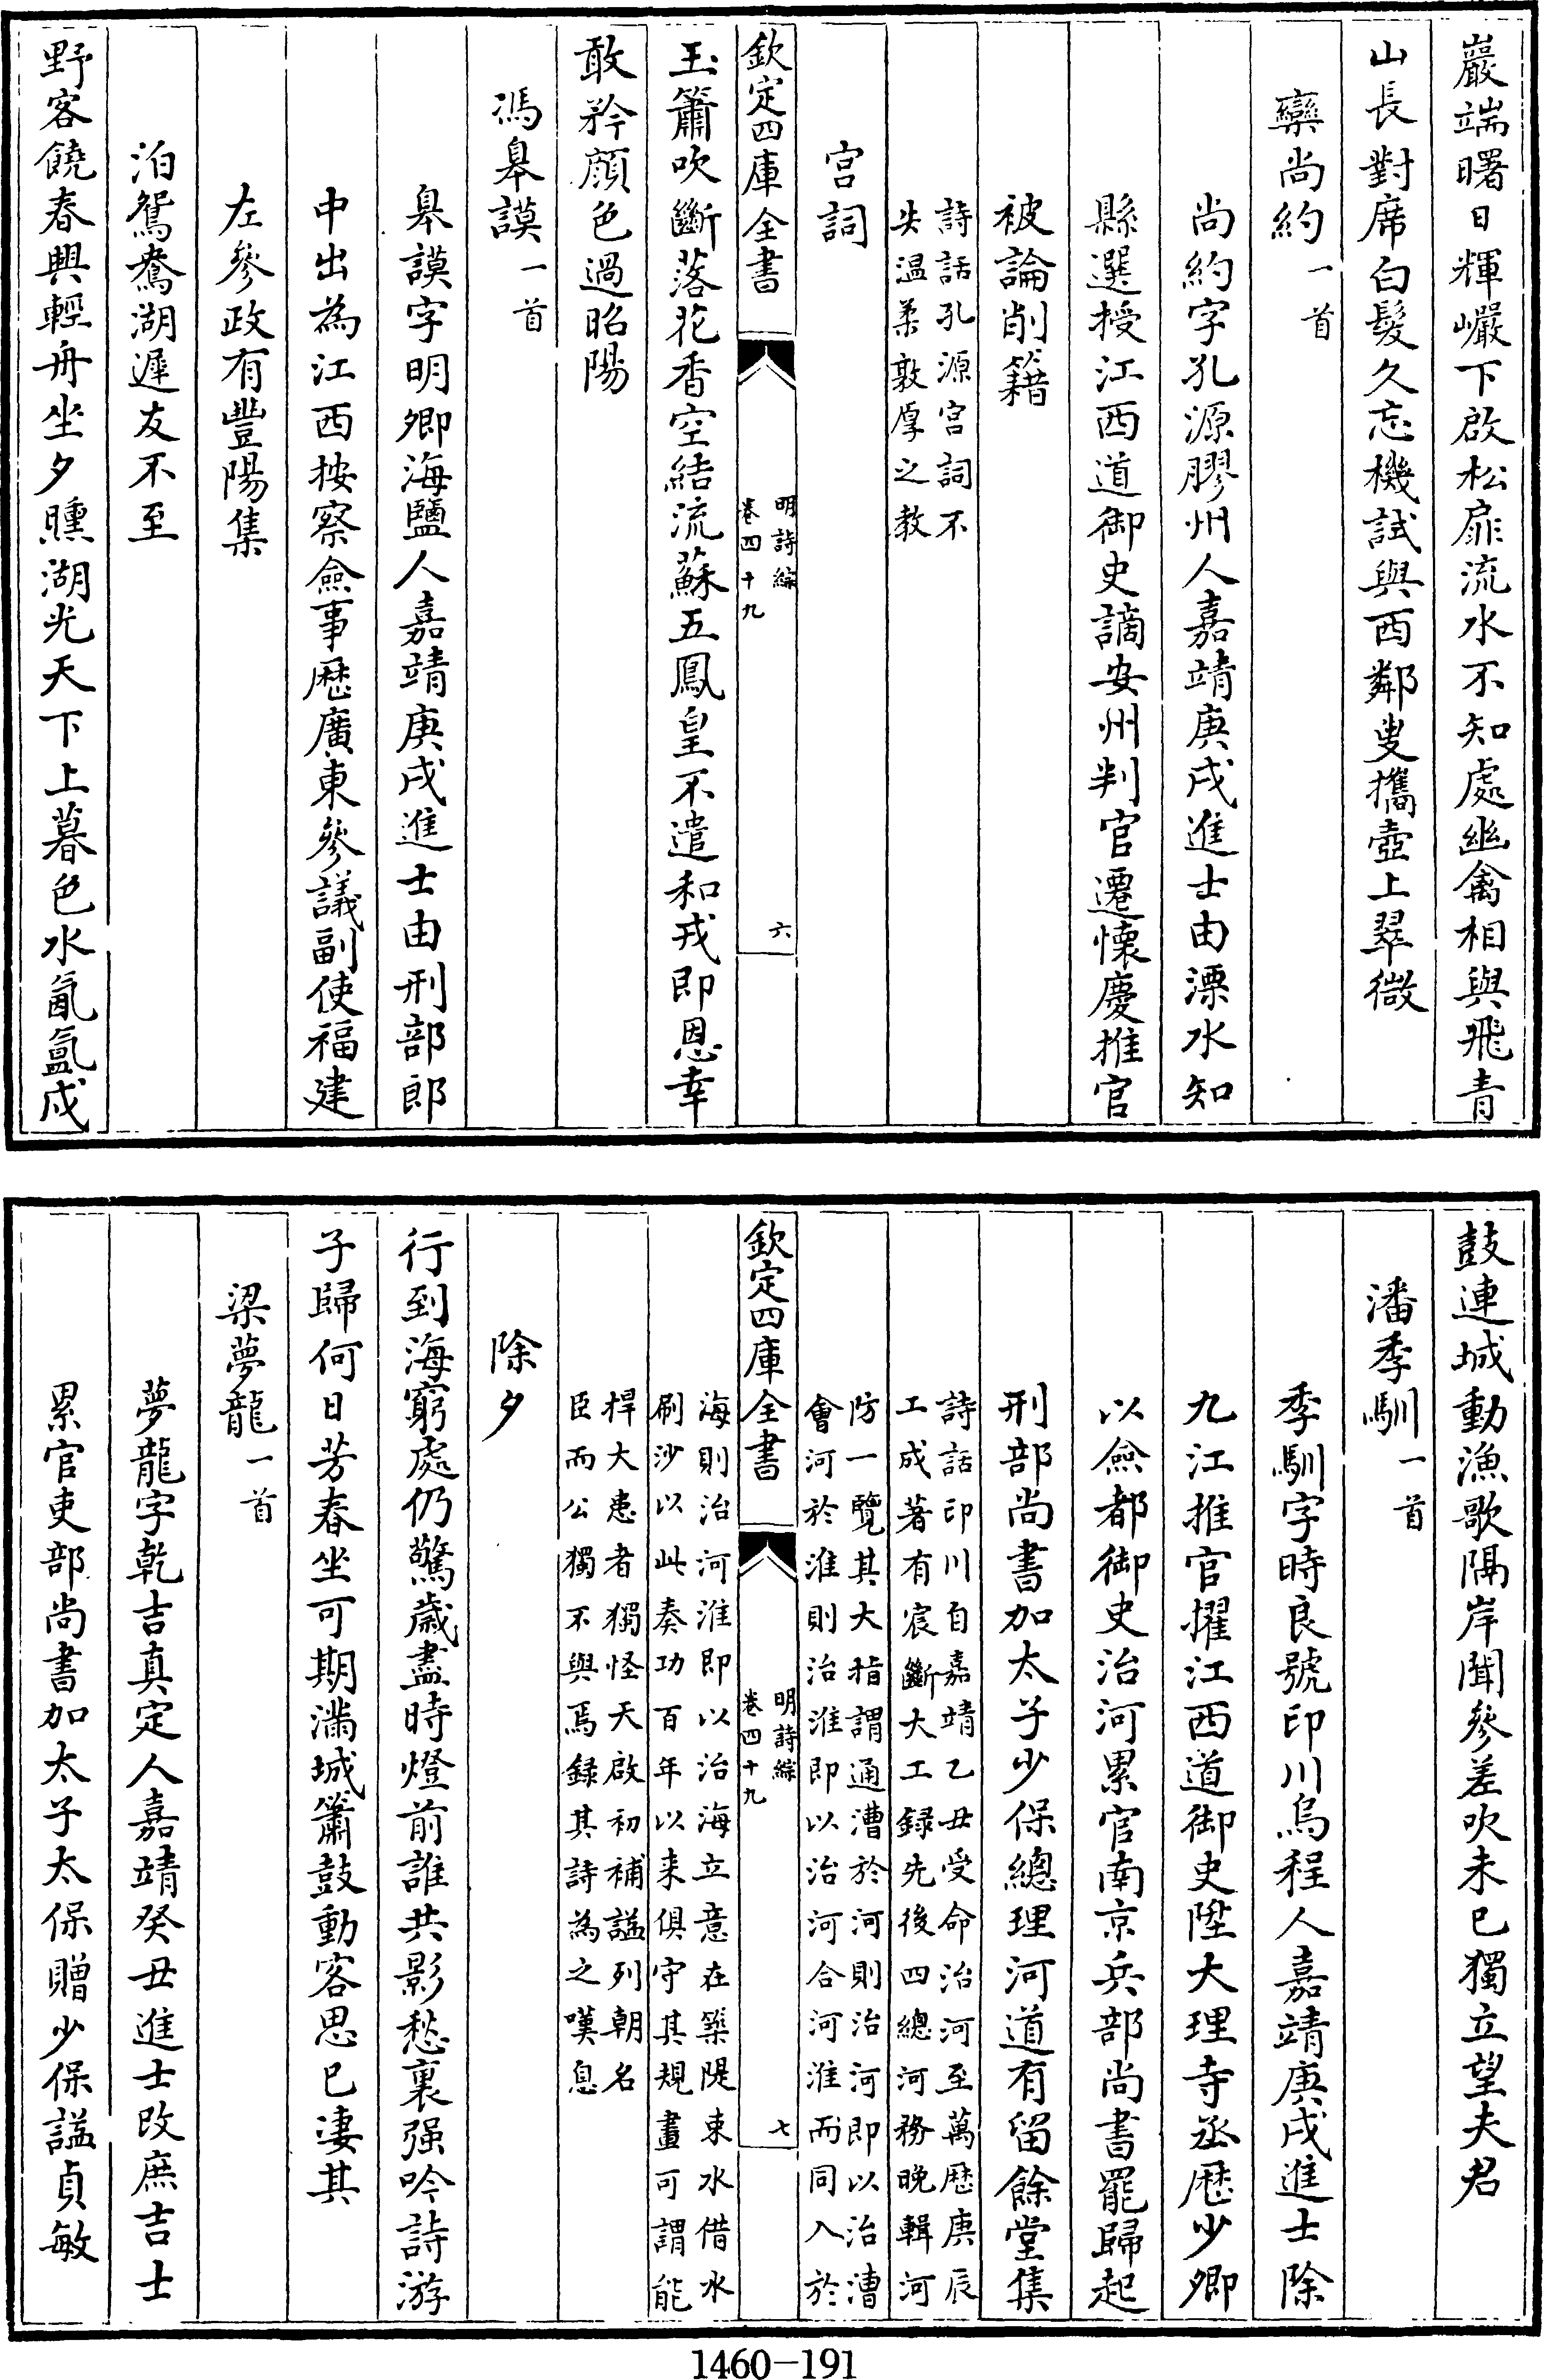 巖端曙日輝巘下啟松扉流水不知處幽禽相與飛青
山長對席白髮久忘機試與西鄰叟攜壺上翠微
欒尚約一首
尚約字孔源膠州人嘉靖庚戌進士由溧水知
縣選授江西道御史謫安州判官遷懷慶推官
被論削籍
詩話孔源宫詞不
失温柔敦厚之教
宫詞
欽定四庫全書
明詩綜
卷四十九
六
玉簫吹斷落花香空結流蘇五鳳皇不遣和戎即恩幸
敢矜顔色過昭陽
馮臯謨一首
臯謨字明卿海鹽人嘉靖庚戌進士由刑部郎
中出為江西按察僉事歷廣東參議副使福建
左參政有豐陽集
泊鴛鴦湖遲友不至
野客饒春興輕舟坐夕曛湖光天下上暮色水氤氲戍
鼓連城動漁歌隔岸聞參差吹未已獨立望夫君
潘季馴一首
季馴字時良號印川烏程人嘉靖庚戌進士除
九江推官擢江西道御史陞大理寺丞歷少卿
以僉都御史治河累官南京兵部尚書罷歸起
刑部尚書加太子少保總理河道有留餘堂集
詩話印川自嘉靖乙丑受命治河至萬歷庚辰
工成著有宸斷大工録先後四總河務晚輯河
防一覽其大指謂通漕於河則治河即以治漕
會河於淮則治淮即以治河合河淮而同入於
欽定四庫全書
明詩綜
卷四十九
七
海則治河淮即以治海立意在築隄束水借水
刷沙以此奏功百年以来俱守其規畫可謂能
捍大患者獨怪天啟初補諡列朝名
臣而公獨不與焉録其詩為之嘆息
除夕
行到海窮處仍驚歲盡時燈前誰共影愁裏强吟詩游
子歸何日芳春坐可期滿城簫鼓動客思已凄其
梁夢龍一首
夢龍字乾吉真定人嘉靖癸丑進士改庶吉士
累官吏部尚書加太子太保贈少保諡貞敏
1460-191